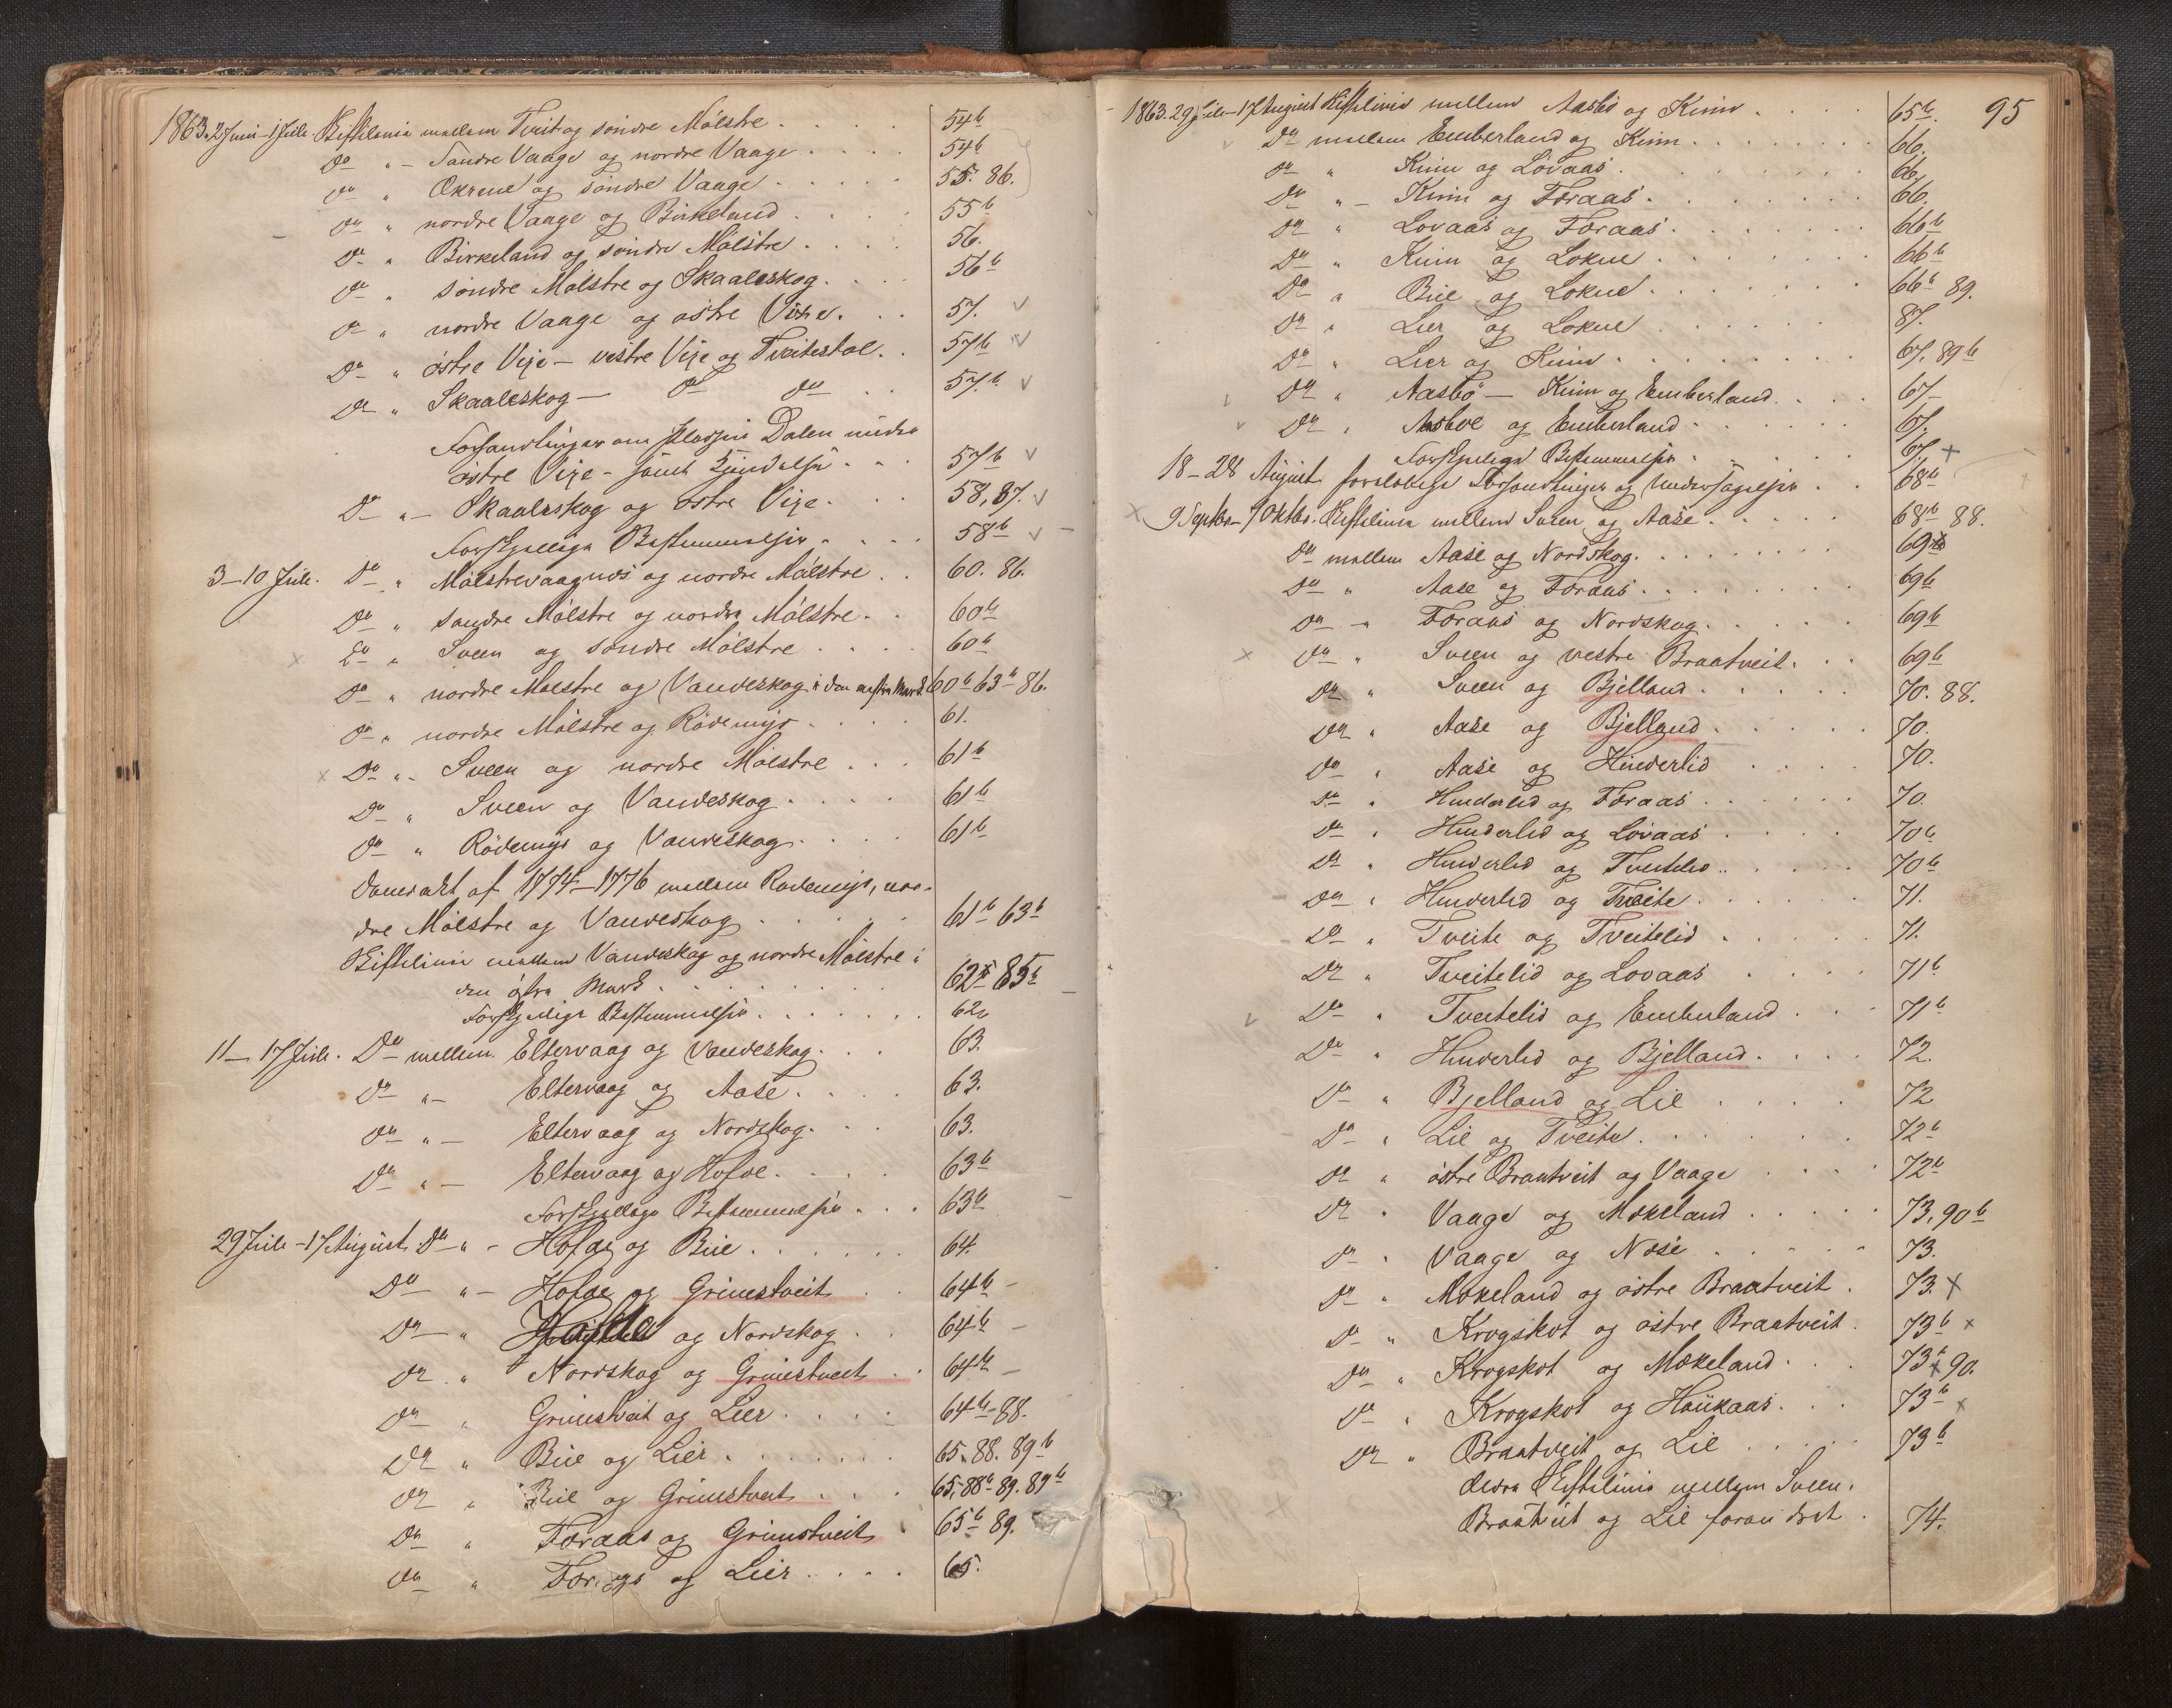 1863. 2 Juni - 1 Juli. Skiftelinie mellem Tveit og søndre Mølstre . . . . . 54b
Do " - Søndre Vaage og nordre Vaage . . . . 54b
Do " Økrene og søndre Vaage . . . . . 55. 86.
Do " nordre Vaage og Birkeland . . . . 55b
Do " Birkeland og søndre Mølstre . . . . 56.
Do " søndre Mølstre og Skaaleskog . . . . 56b
Do " nordre Vaage og østre Vije . . . 57. v
Do " østre Veje - vestre Veje og Tveitestøl . . 57b v
Do " Skaaleskog - Do Do . . 57b. v
Forhandlinger om Pladsen Dalen under
østre Veje - samt . . . 57b v
Do " - Skaaleskog og østre Veje . . . 58, 87. v
Forskjellige Bestemmelser . . . . 58b v -
3-10 Juli. Do " Mølstrevaagnøs og nordre Mølstre . . 60. 86.
Do " søndre Mølstre og nordre Mølstre . . 60b
x Do " Sveen og søndre Mølstre . . . . 60b
Do " nordre Mølstre og Vandeskog i den vestre Mark 60b 63b 86.
Do " nordre Mølstre og Rødemyr . . . . 61.
x Do " - Sveen og nordre Mølstre . . . 61b
Do " Sveen og Vandeskog . . . . 61b
Do " Rødemyr og Vandeskog . . . . 61b
af 1774-1776 mellem Rødemyr, nor-
dre Mølstre og Vandeskog . . . . . 61b 63b
Skiftelinie mellem Vandeskog og nordre Mølstre i
den østre Mark . . . . . . . . 62 85b -
Forskjellige Bestemmelser . . . . . . . 62b
11-17 Juli. Do mellem Eltervaag og Vandeskog . . . 63.
Do " - Eltervaag og Aase . . . . 63.
Do " - Eltervaag og Nordskog . . . 63.
Do " - Eltervaag og Hofde . . . . 63b
Forskjellige Bestemmelser . . . 63b -
29 Juli - 17 August Do " - Hofde og Bue . . . . . . 64.
Do " - Hofde og Grimstveit . . 64b -
Do - " Hofde og Nordskog . . 64b -
Do " Nordskog og Grimstveit . . 64b -
Do " Grimstveit og Lier . . . . 64b - 88.
Do " Bue og Lier . . . . . . . 65. 88. 89b
Do " Bue og Grimstveit . . . 65, 88b 89. 89b
Do " Foraas og Grimstveit . 65b 89.
Do " Foraas og Lier . . . . 65.
95
1863. 29 Juli - 17 August Skiftelinie mellem Aasbø og Kinn . . . . 65b.
v Do mellem Emberland og Kinn . . . . . . . . 66.
Do " Kinn og Løvaas . . . . . . . 66.
Do " - Kinn og Foraas . . . . . . . 66.
Do " Løvaas og Foraas . . . . . . . 66b
Do " Kinn og Lokne . . . . . . . 66b
Do " Bue og Lokne . . . . . . . 66b 89.
Do " Lier og Lokne . . . . . . 87.
Do " Lier og Kinn . . . . . . . . 67. 89b
v Do " Aasbø - Kinn og Emberland . . . 67 -
v Do " Aasbøe og Emberland . . . . . . 67.
Forskjellige Bestemmelser . . . . . . 67. +
18-28 August foreløbige Forhandlinger og Undersøgelser . . 68b
x 9 Septbr - 7 Oktbr. Skiftelinie mellem Sveen og Aase . . . . . 68b 88.
Do mellem Aase og Nordskog . . . . . . . . 69.
Do " Aase og Foraas . . . . . . . . 69b
Do - " Foraas og Nordskog . . . . . 69b
x Do " Sveen og vestre Braatveit . . . 69b
Do " Sveen og Bjelland . . . . . . 70. 88.
Do " Aase og Bjelland . . . . . . 70.
Do " Aase og Hinderlid . . . . 70.
Do " Hinderlid og Foraas . . . . . . 70.
Do " Hinderlid og Løvaas . . . . 70b
Do " Hinderlid og Tveitelid . . . . . . 70b
- Do " Hinderlid og Tveite . . . . . . 71.
- Do " Tveite og Tveitelid . . . . . 71.
Do " Tveitelid og Løvaas . . . . 71b
v Do " Tveitelid og Emberland . . . 71b
Do " Hinderlid og Bjelland . . . . 72.
Do " Bjelland og Lie . . . . 72
- Do " Lie og Tveite . . . . . . 72b
Do " østre Braatveit og Vaage . . . . 72b
Do " Vaage og Mækeland . . . . . 73, 90b
Do " Vaage og Næse . . . . . 73.
Do " Mækeland og østre Braatveit . 73. x
Do " Krogskot og østre Braatveit . 73b x
Do " Krogskot og Mækeland . . . 73b x 90.
Do " Krogskot og Haukaas . . . 73b x
Do " Braatveit og Lie . . . . . 73b
Skiftelinie mellem Sveen,
Braatveit og Lie forandret . 74.